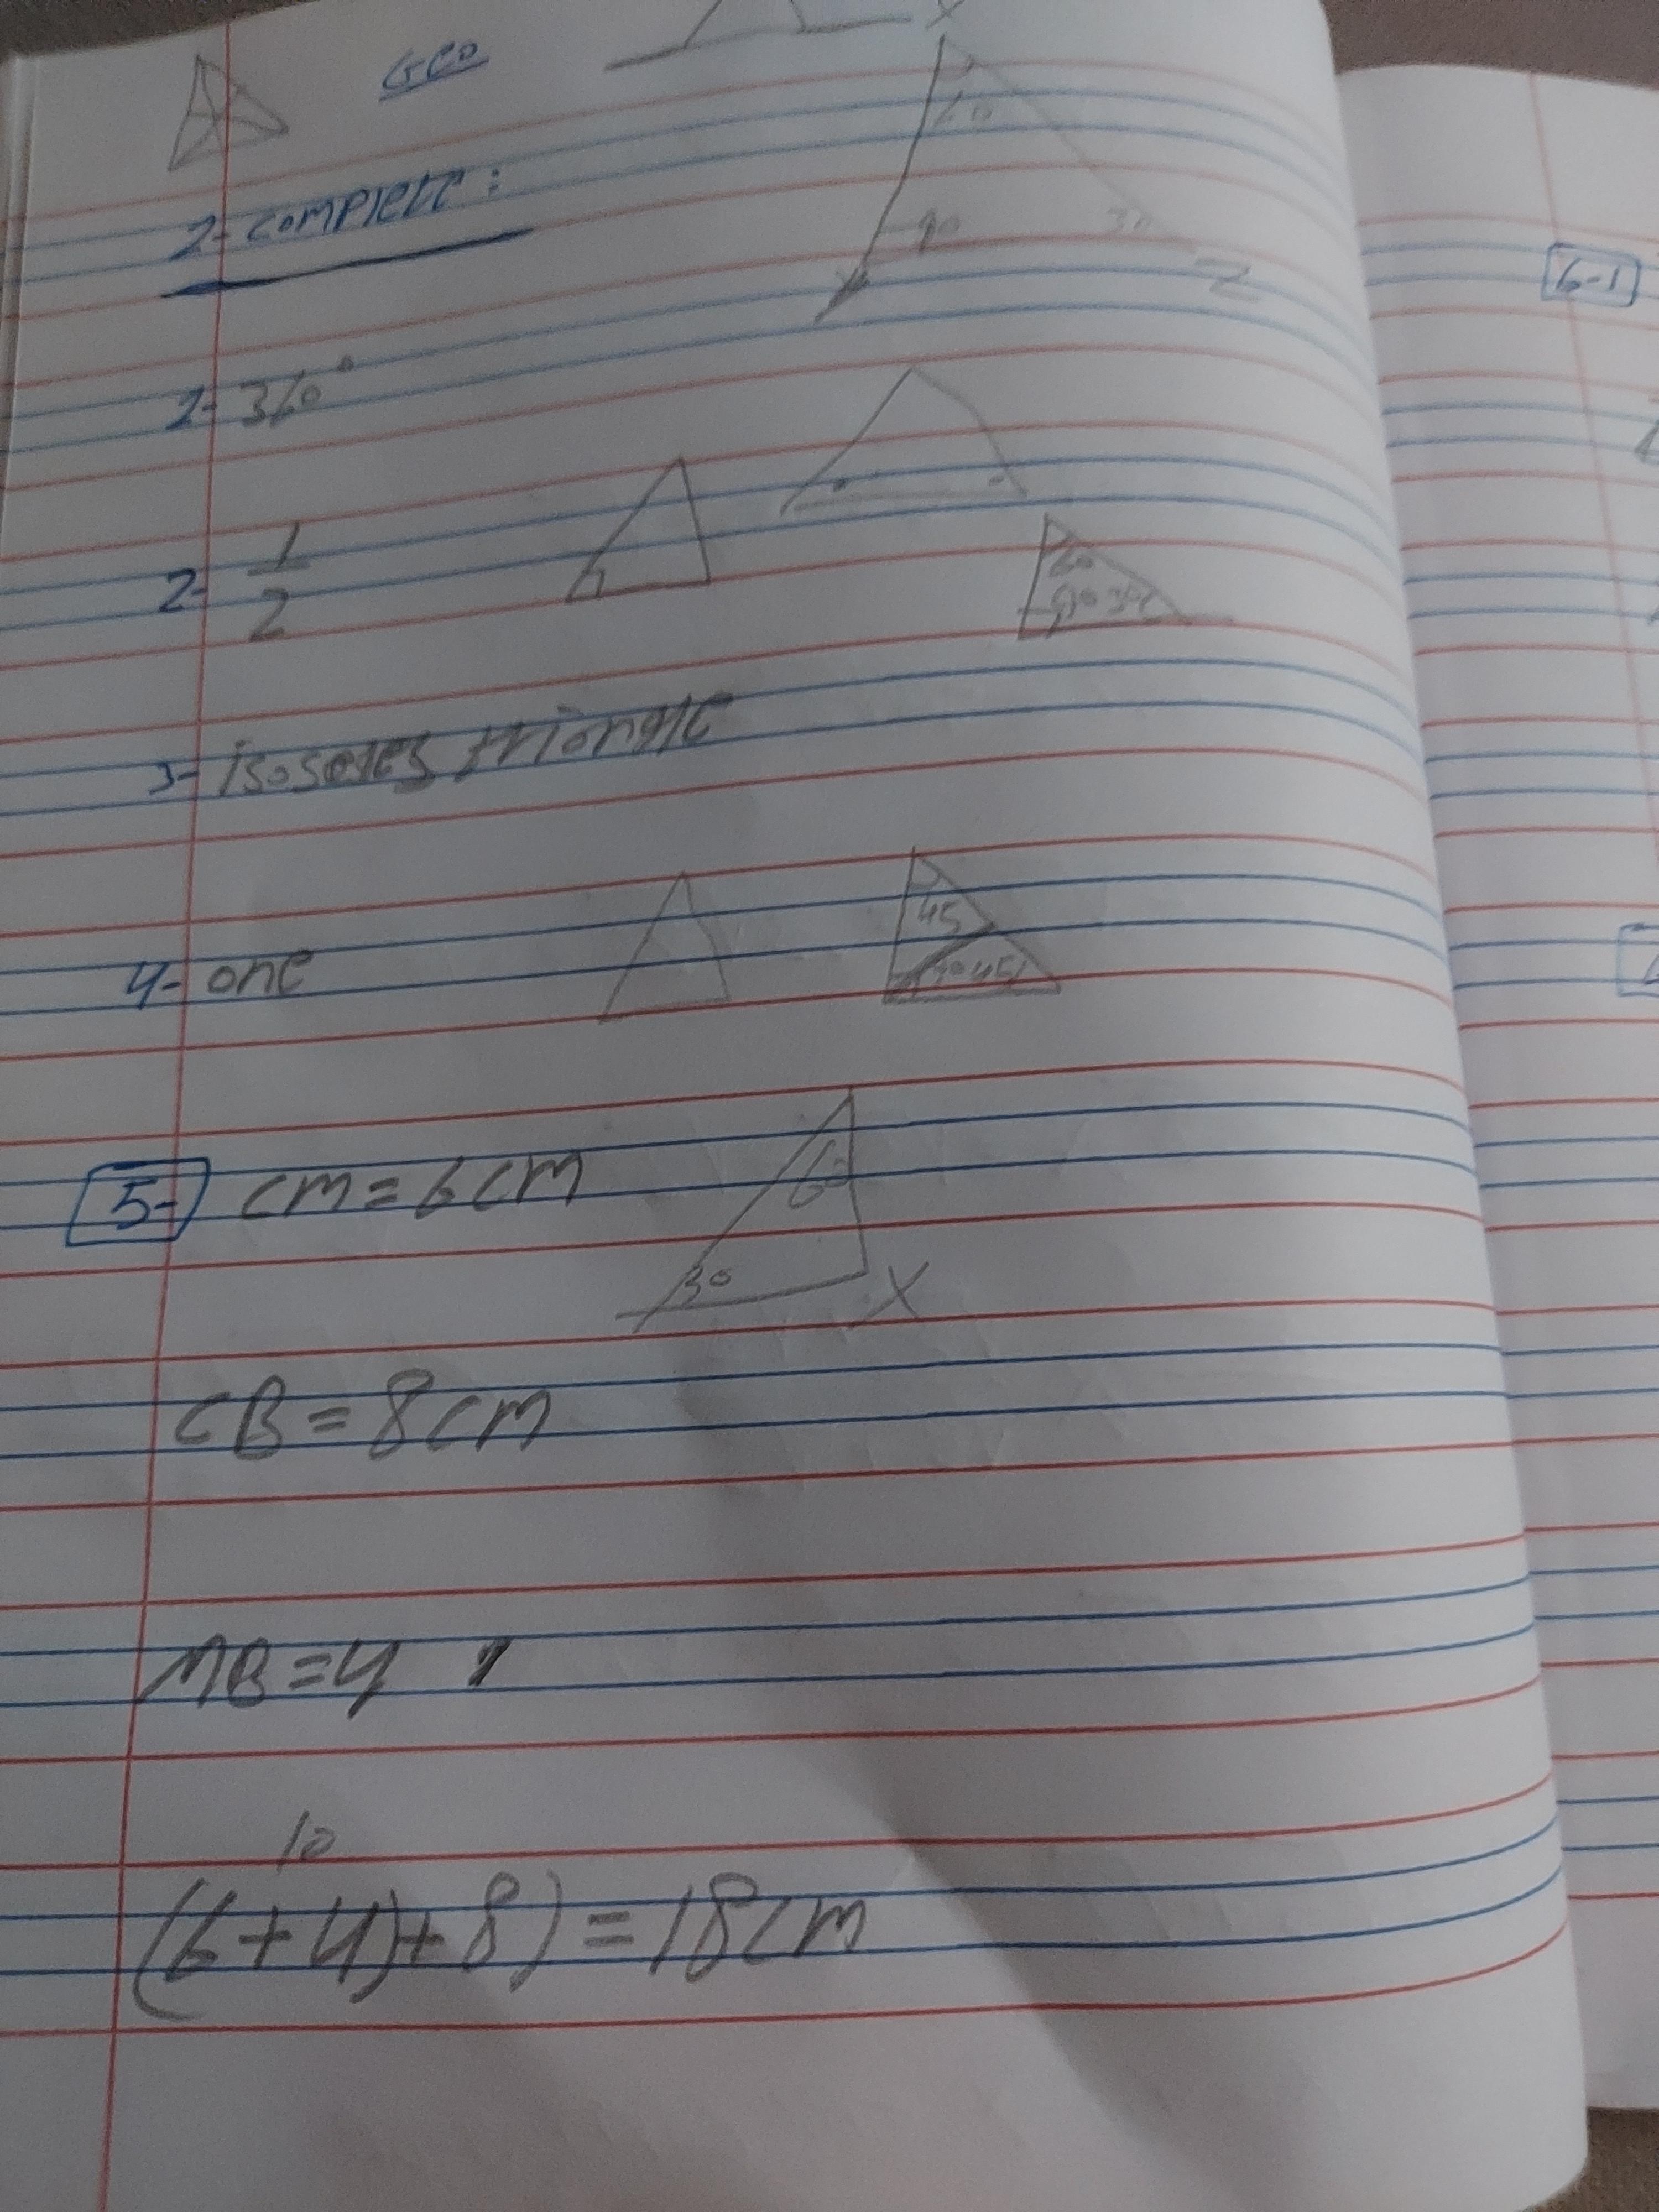 Geo
X
60
2- complete:
90 30
Z
6-1
1- 360°
2- 1/2
60
90 30
3- isosoles triangle
45
4- one
90 45
5- CM = 6 CM
60
30
X
CB = 8 CM
MB = 4
10
(6+4)+8) = 18 cm